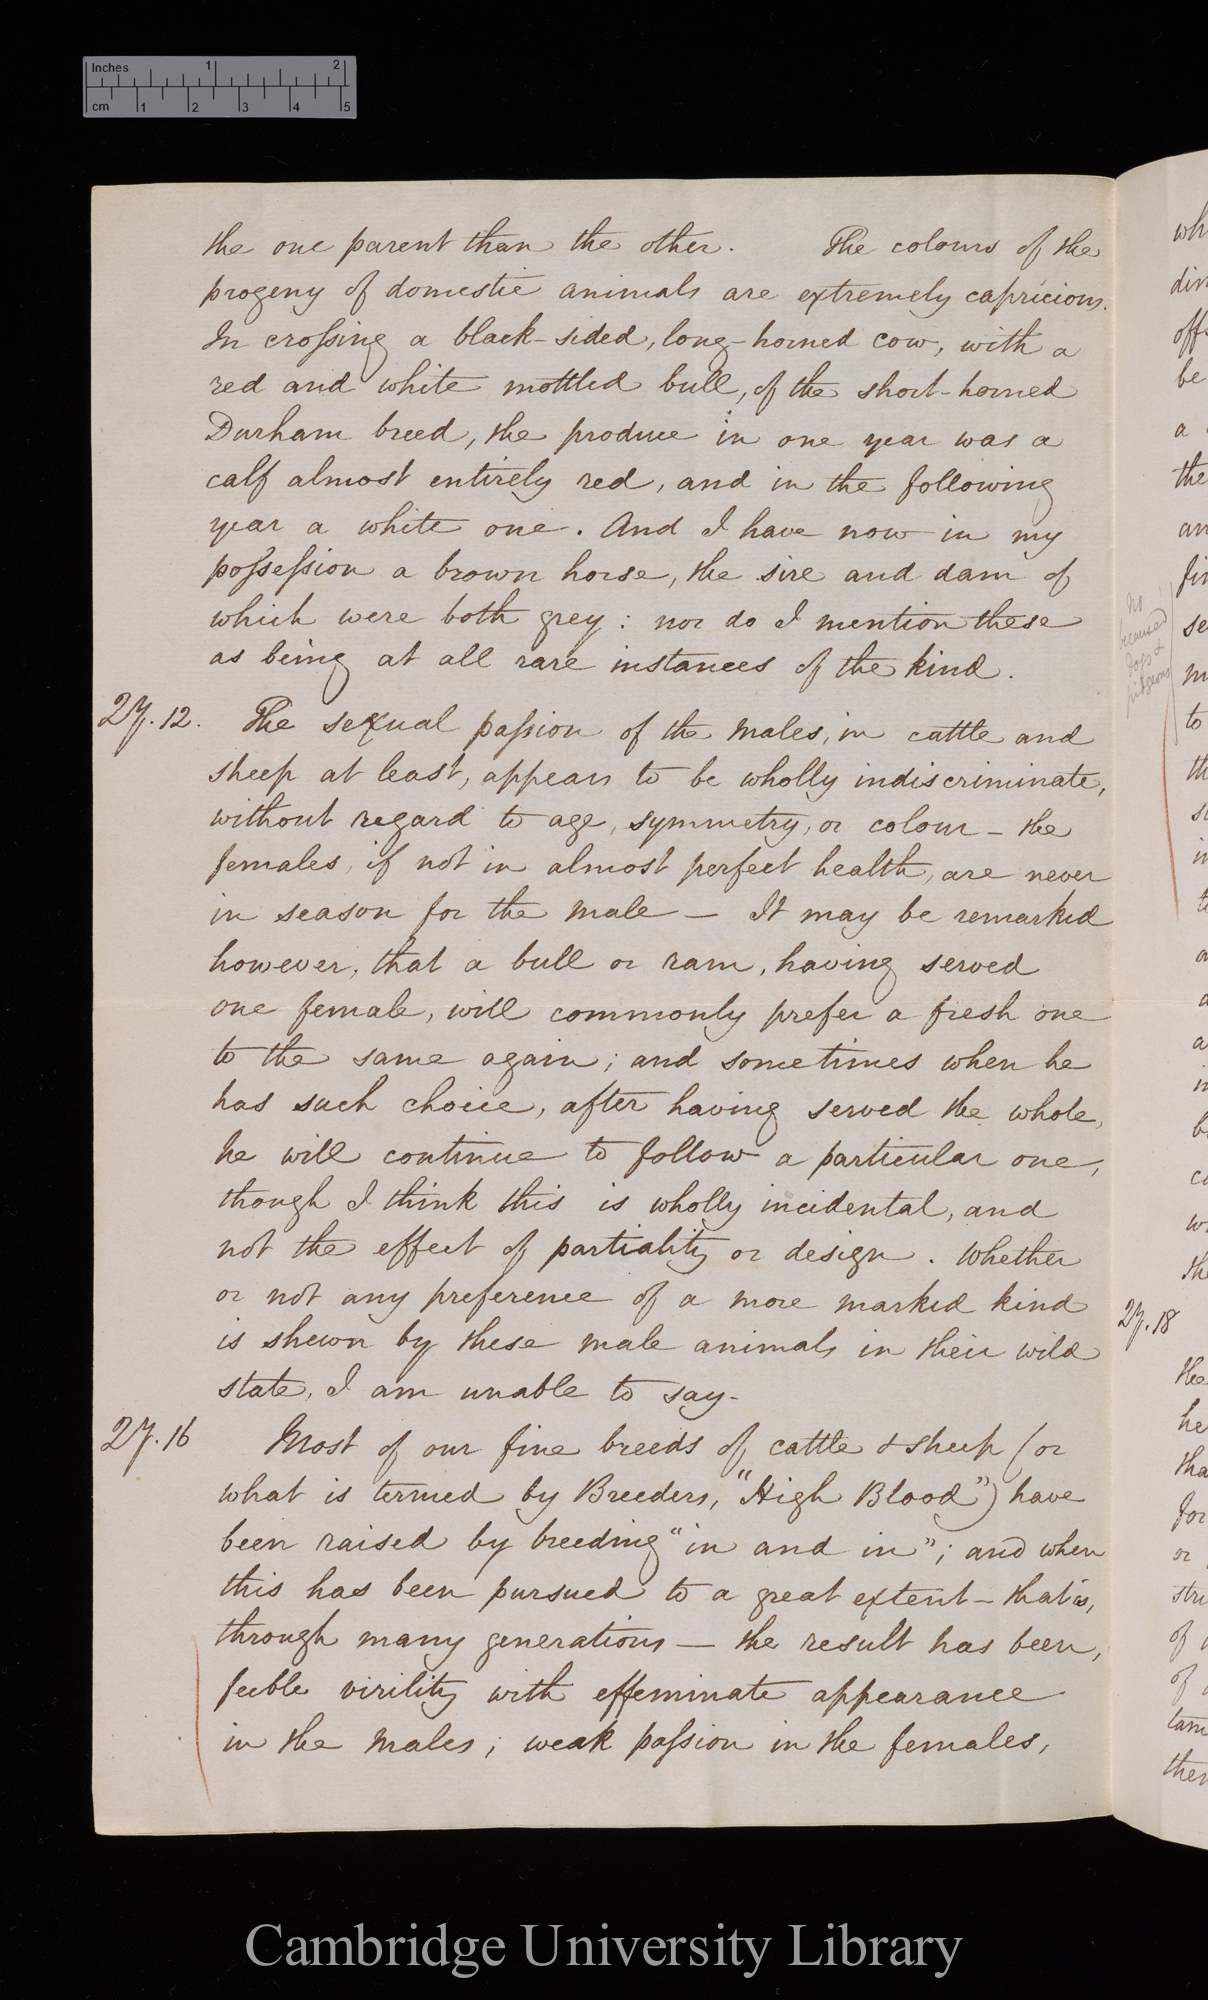 Inches 1 2
cm 1 2 3 4 5
the one parent than the other. The colours of the
progeny of domestic animals are extremely capricious.
In croſsing a black-sided, long-horned cow, with a
red and white mottled bull, of the short-horned
Durham breed, the produce in one year was a
calf almost entirely red, and in the following
year a white one. And I have now in my
poſseſsion a brown horse, the sire and dam of
which were both grey: nor do I mention these
as being at all rare instances of the kind.
27.12. The sexual paſsion of the males, in cattle and
sheep at least, appears to be wholly indiscriminate,
without regard to age, symmetry, or colour – the
females, if not in almost perfect health, are never
in season for the male – It may be remarked
however, that a bull or ram, having served
one female, will commonly prefer a fresh one
to the same again; and sometimes when he
has such choice, after having served the whole,
he will continue to follow a particular one,
though I think this is wholly incidental, and
not the effect of partiality or design. Whether
or not any preference of a more marked kind
is shewn by these male animals in their wild
state, I am unable to say –
27.16 Most of our fine breeds of cattle & sheep (or
what is termed by Breeders, "High Blood") have
been raised by breeding "in and in"; and when
this has been pursued to a great extent – that is,
through many generations – the result has been,
feeble virility with effeminate appearance
in the males; weak paſsion in the females,
no
because
dogs &
pidgeons
27.18
Cambridge University Library